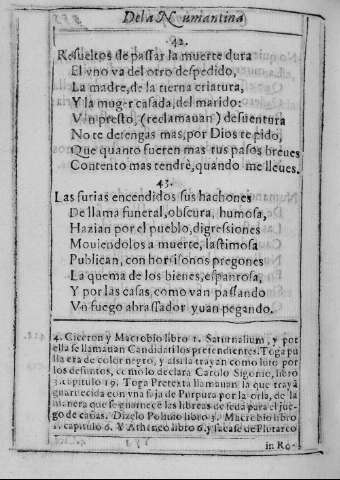 De la Numantina
42.
Resueltos de passar la muerte dura
El vno va del otro despedido,
La madre, de la tierna criatura,
Y la muger casada, del marido:
Vn presto, (reclamauan) desuentura
No te detengas mas, por Dios te pido,
Que quanto fueren mas tus pasos breues
Contento mas tendrè, quando me lleues.
43.
Las furias encendidos sus hachones
De llama funeral, obscura, humosa,
Hazian por el pueblo, digressiones
Mouiendolos a muerte, lastimosa
Publican, con horrisonos pregones
La quema de los bienes, espantosa,
Y por las casas, como van passando
Vn fuego abrassador yuan pegando.
4. Ciceron y Macrobio libro 1. Saturnalium, y por
ella se llamauan Candidati los pretendientes. Toga pu
lla era de color negro, y assi la trayan como luto por
los defuntos, como lo declara Carolo Sigonio, libro
3. capitulo 19. Toga Pretexta llamauan la que traya
guarnecida con vna faja de Purpura por la orla, de la
manera que se guarnece las libreas de seda para el jue
go de cañas. Dizelo Poluio libro 3. Macrobio libro
1. capitulo 6. Y Atheneo libro 6. y sacase de Plutarco
in Ro-